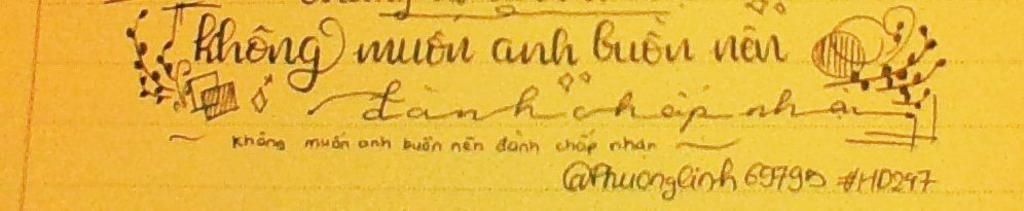 không muốn anh buồn nên
đành chấp nhận
~ không muốn anh buồn nên đành chấp nhận ~
@Phuonglinh #HD247